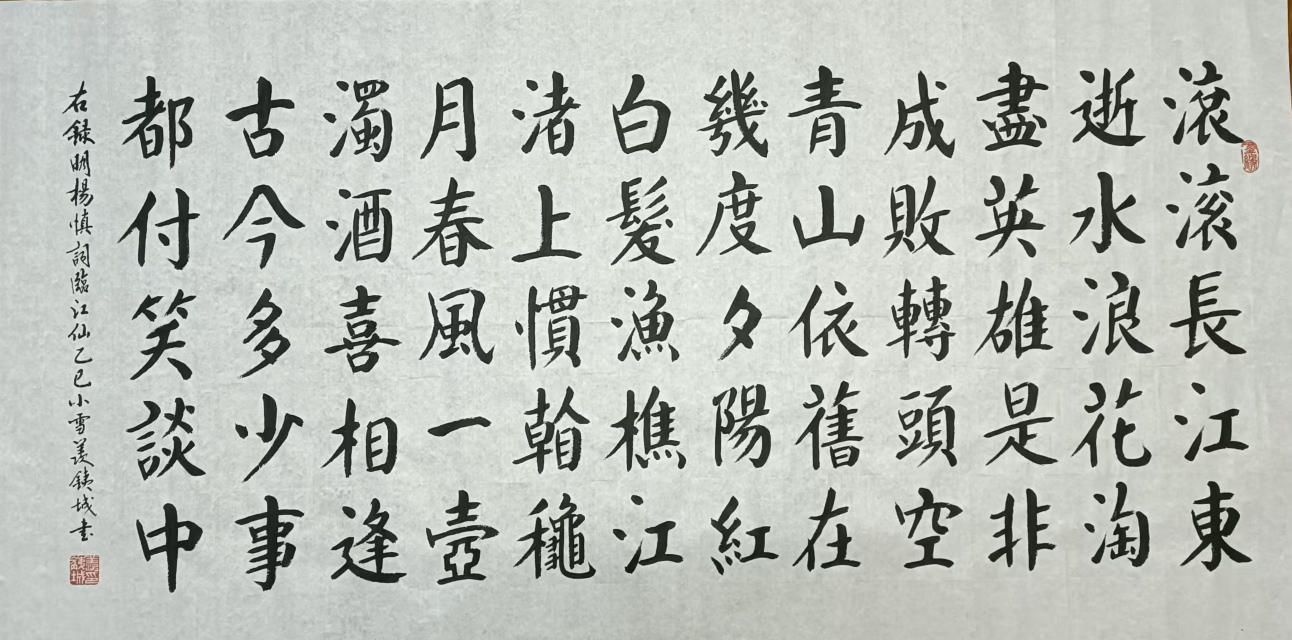 滾滾長江東
逝水浪花淘
盡英雄是非
成敗轉頭空
青山依舊在
幾度夕陽紅
白髮漁樵江
渚上慣䎐穐
月春風一壺
濁酒喜相逢
古今多少事
都付笑談中
右録明楊慎詞臨江仙乙巳小雪姜錢城书